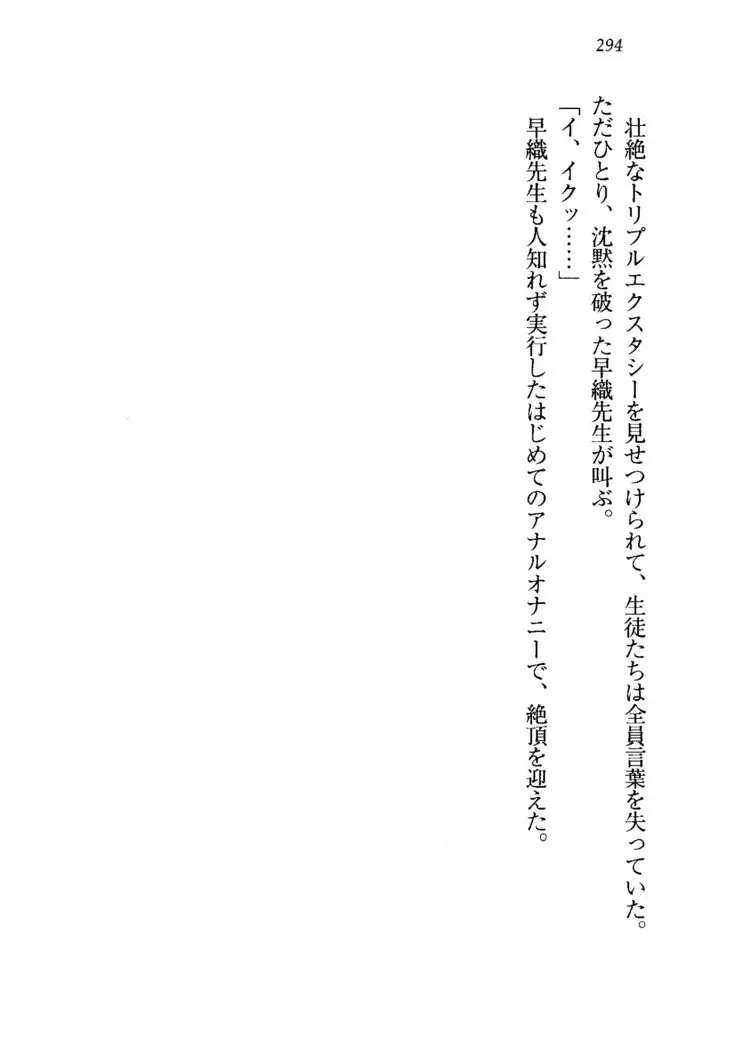 294
壮絶なトリプルエクスタシーを見せつけられて、生徒たちは全員言葉を失っていた。
ただひとり、沈黙を破った早織先生が叫ぶ。
「イ、イクッ……」
早織先生も人知れず実行したはじめてのアナルオナニーで、絶頂を迎えた。